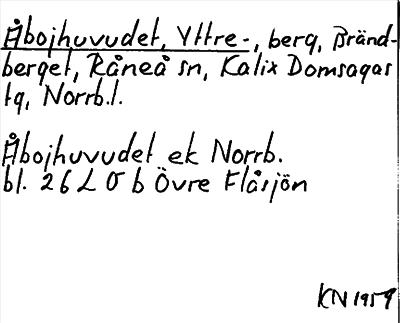 Åbojhuvudet, Yttre-, berg, Bränd-
berget, Råneå sn, Kalix Domsagas
tg, Norrb.l.
Åbojhuvudet ek Norrb.
bl. 26 L 0 b Övre Flåsjön
KN 1959